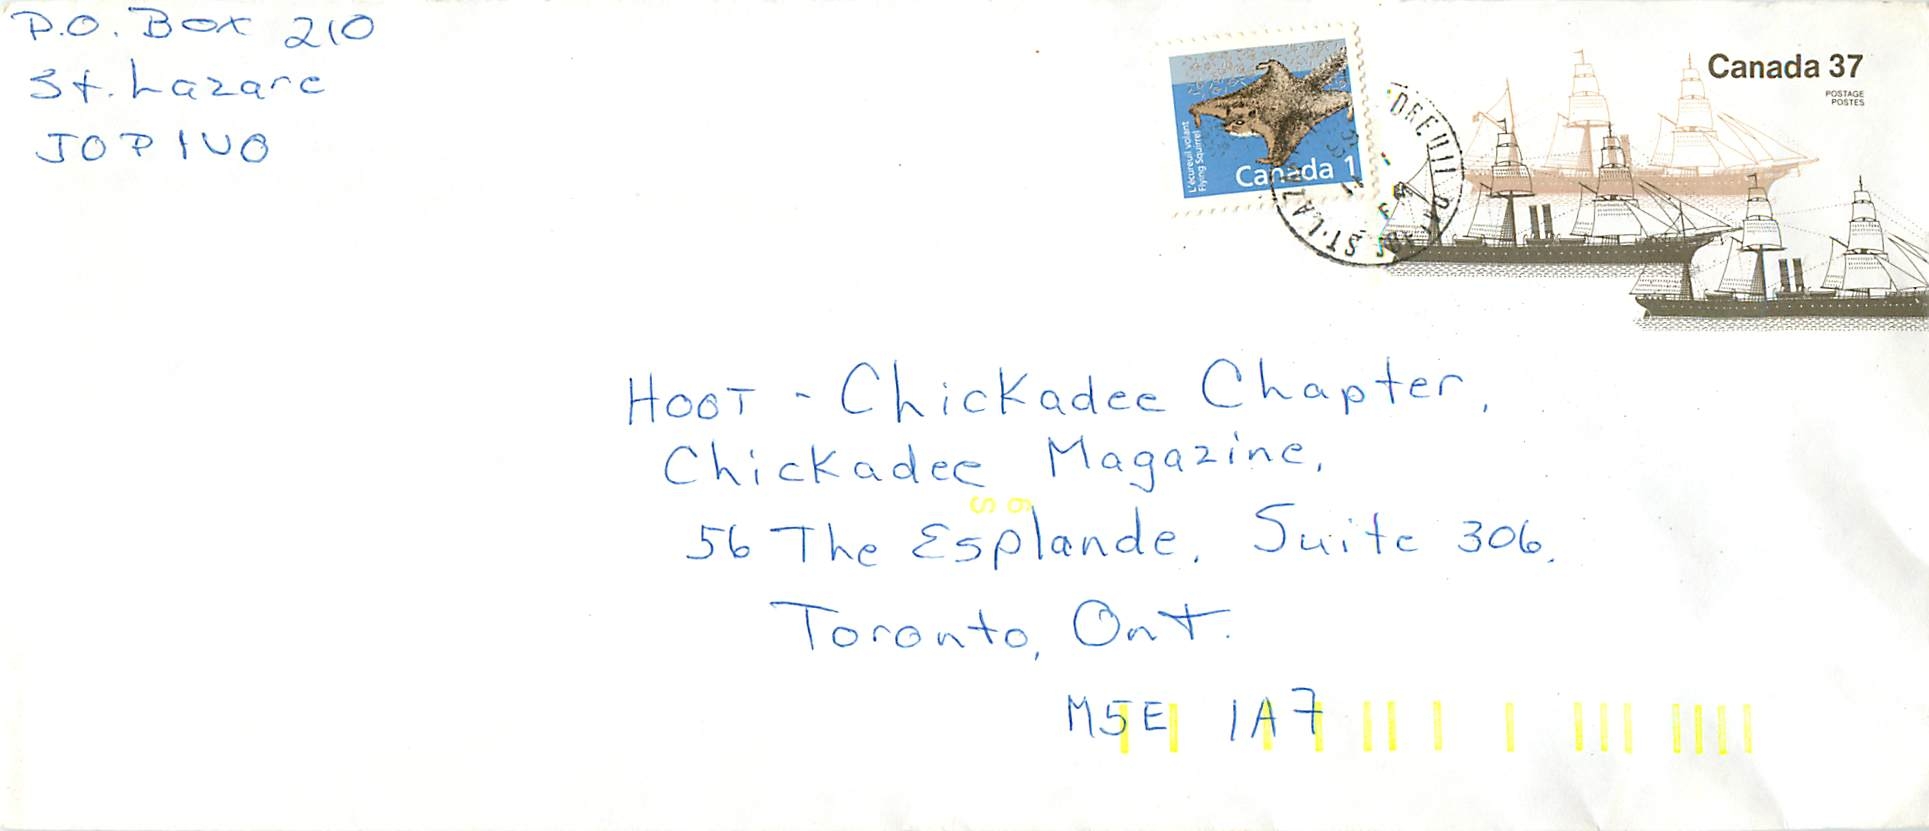 P.O. Box 210
St. Lazare
J0P 1V0
L'écureuil volant
Flying Squirrel
Canada 1
Canada 37
POSTAGE
POSTES
ST-LAZ
HOOT - Chickadee Chapter,
Chickadee Magazine,
S 6
56 The Esplande, Suite 306,
Toronto, Ont.
M5E 1A7